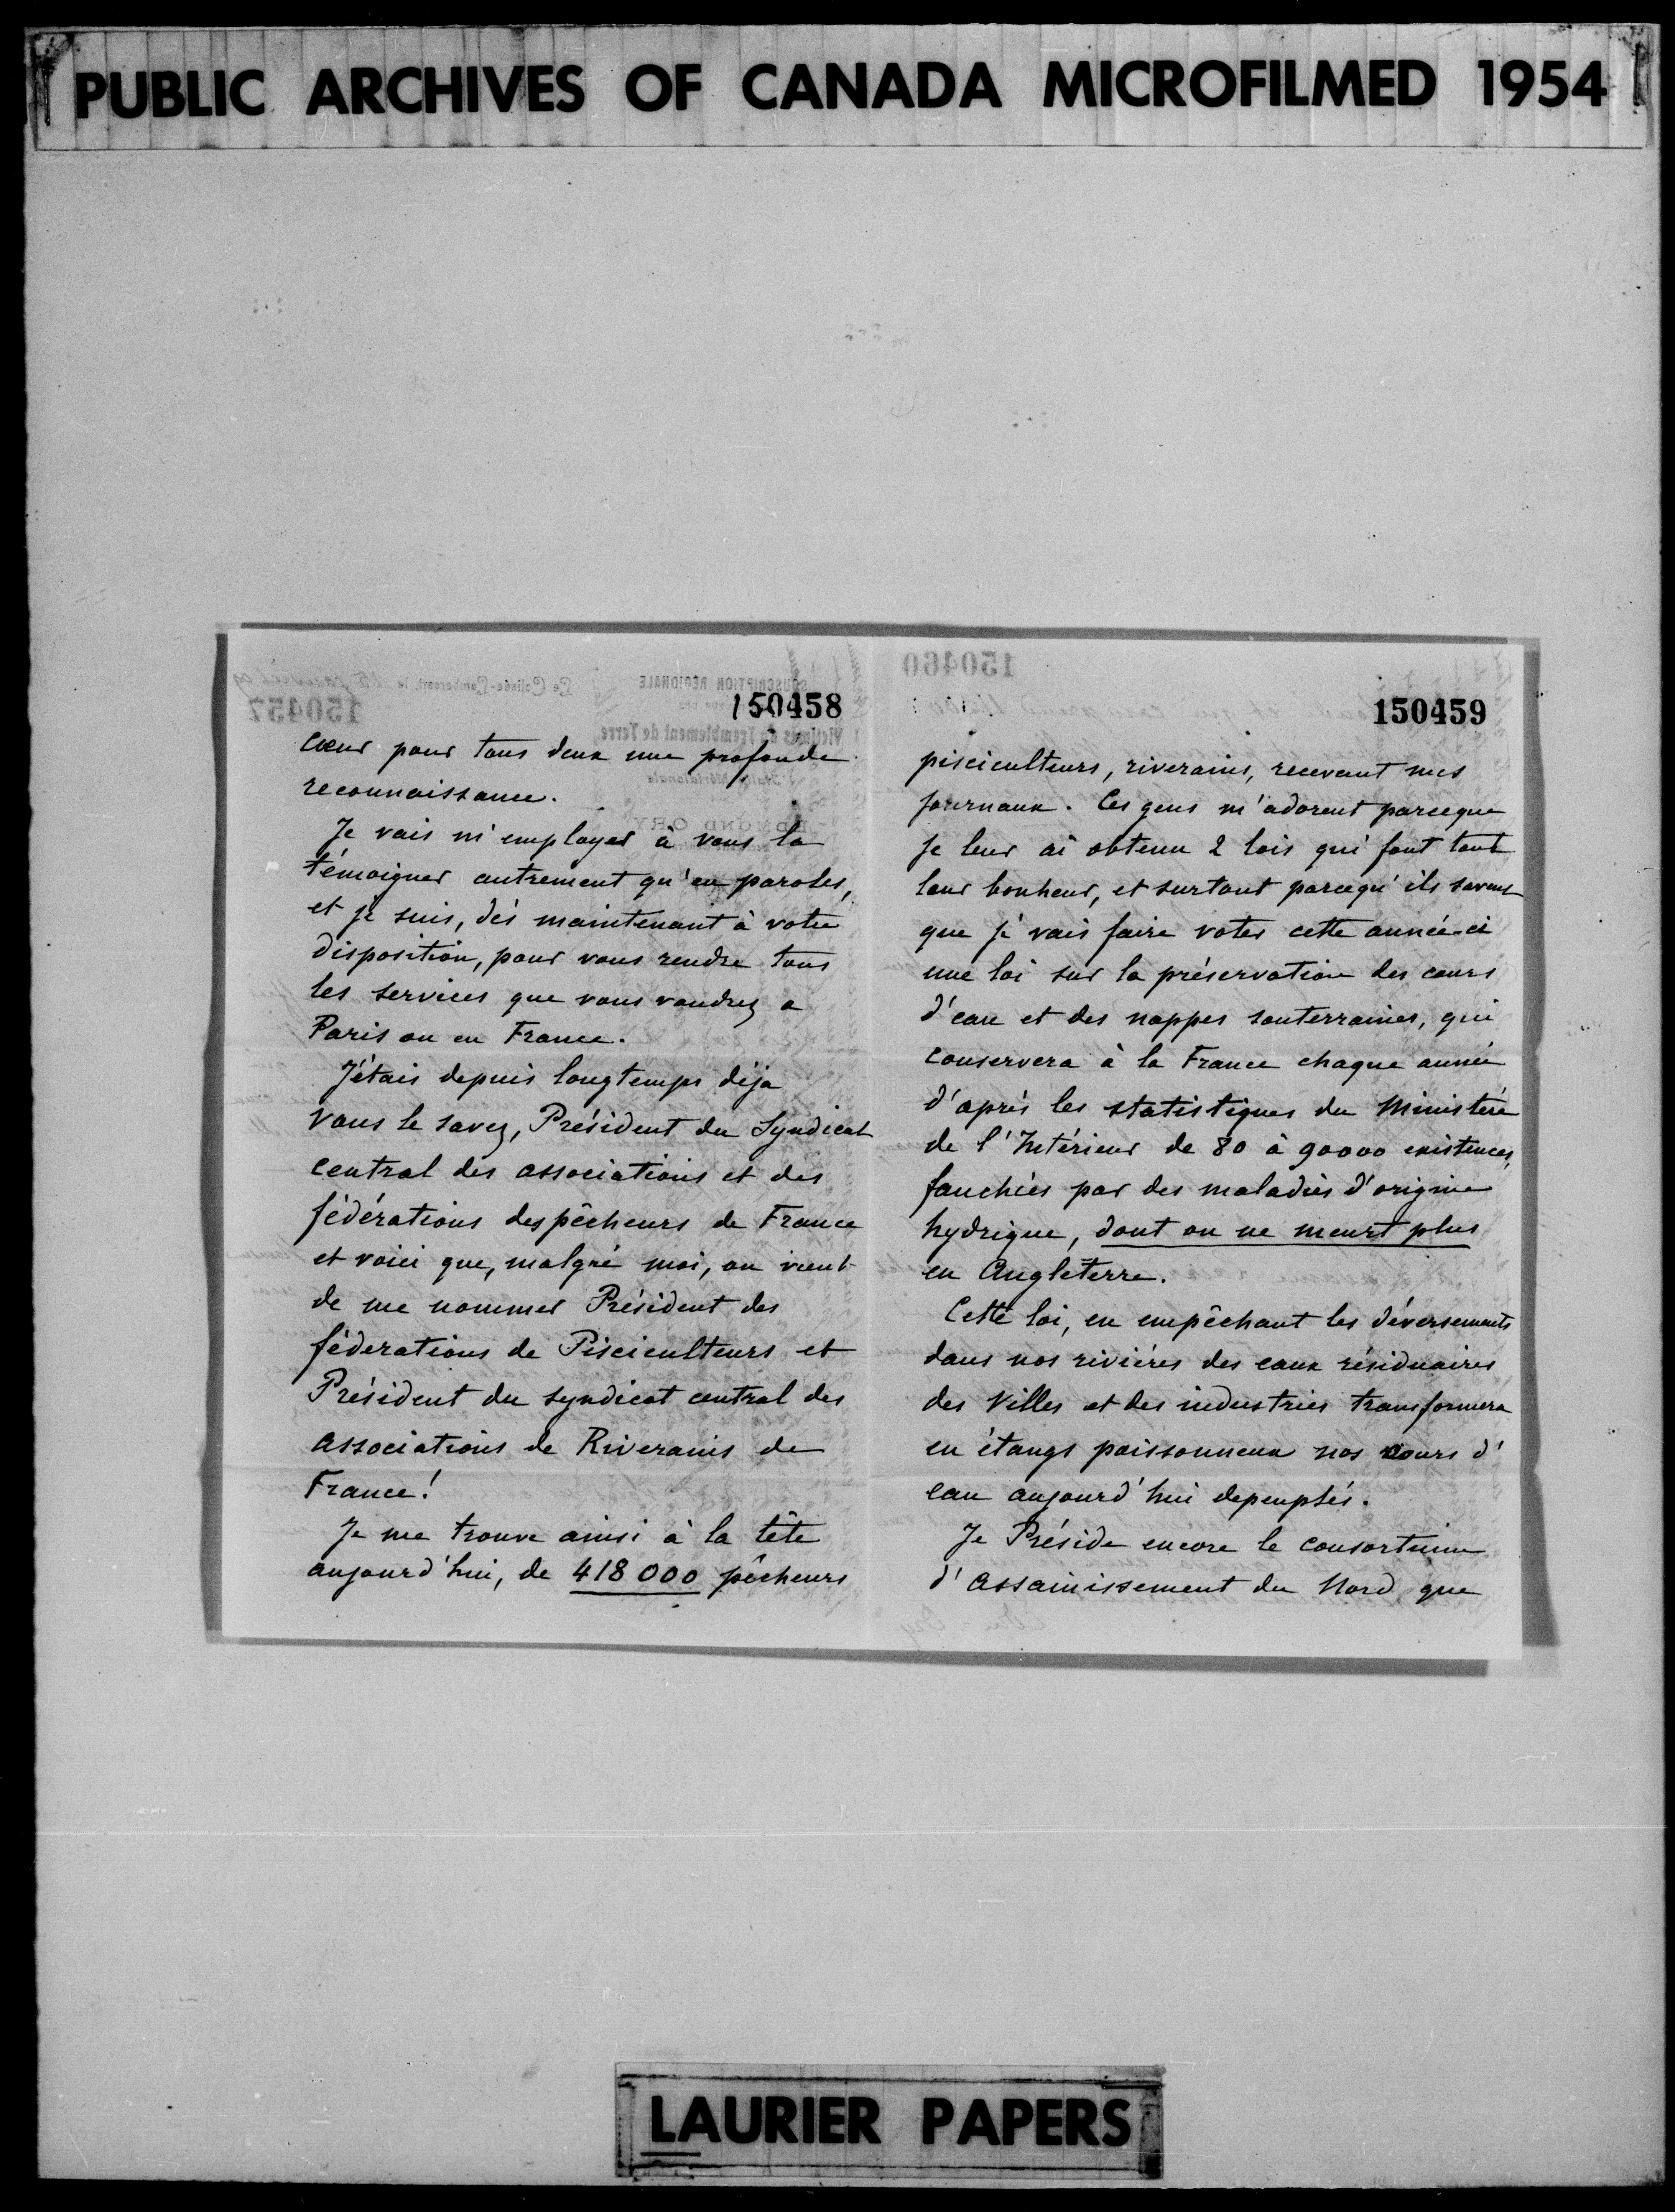 PUBLIC ARCHIVES OF CANADA MICROFILMED 1954
150458
cœur pour tous deux une profonde
reconnaissance.
Je vais m'employer à vous la
témoigner autrement qu'en paroles,
et je suis, dès maintenant à votre
disposition, pour vous rendre tous
les services que vous voudrez a
Paris ou en France.
J'étais depuis longtemps déja
vous le savez, Président du Syndicat
central des associations et des
fédérations des pêcheurs de France
et voici que, malgré moi, on vient
de me nommer Président des
féderations de Pisciculteurs et
Président du syndicat central des
associations de Riverains de
France!
Je me trouve ainsi à la tête
aujourd'hui, de 418000 pêcheurs
150459
pisciculteurs, riverains, recevant mes
journaux. Ces gens m'adorent parceque
je leur ai obtenu 2 lois qui font tout
leur bonheur, et surtout parcequ'ils savent
que je vais faire voter cette année-ci
une loi sur la préservation des cours
d'eau et des nappes souterraines, qui
conservera à la France chaque année
d'après les statistiques du Ministère
de l'Intérieur de 80 à 90000 existences,
fauchées par des maladies d'origine
hydrique, dont on ne meurt plus
en Angleterre.
Cette loi, en empêchant les déversements
dans nos rivières des eaux résiduaires
des Villes et des industries transformera
en étangs poissonneux nos cours d'
eau aujourd'hui depeuplés.
Je Préside encore le consortium
d'assainissement du Nord que
LAURIER PAPERS